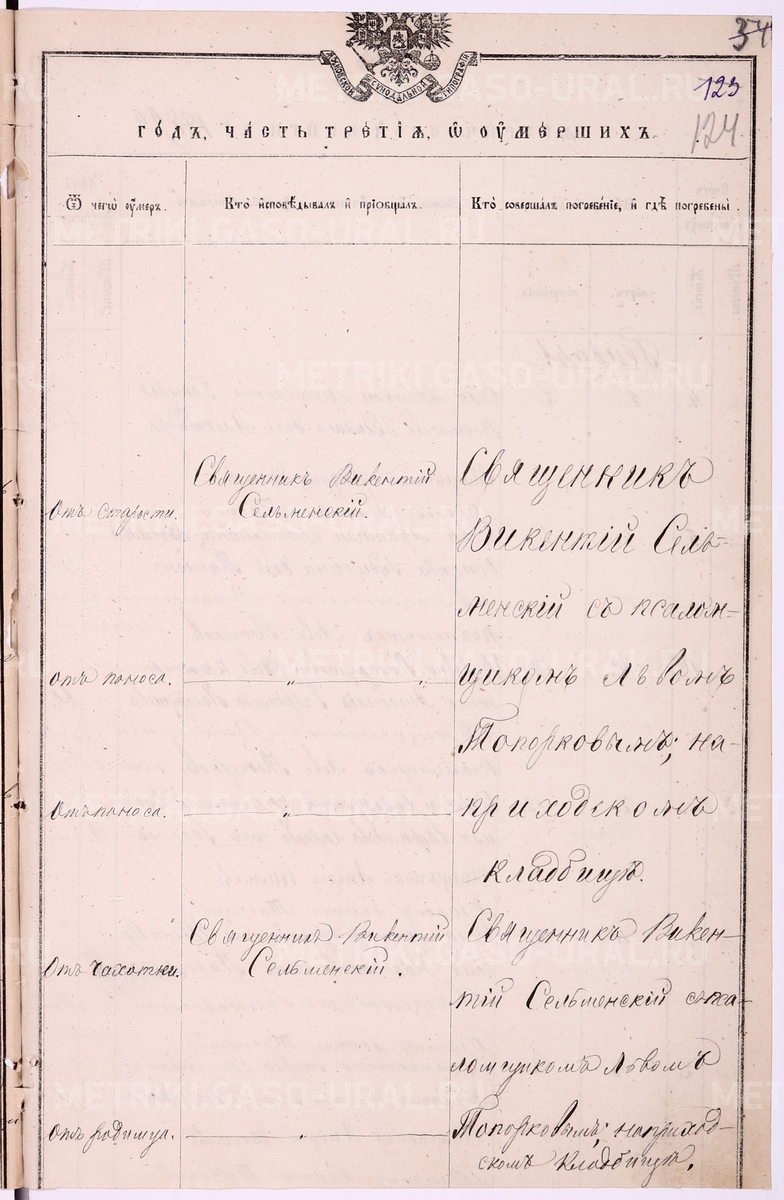 34
123
124
МОСКОВСКОЙ СѴНОДАЛЬНОЙ ТИПОГРАФІИ
ГОДЪ, ЧАСТЬ ТРЕТІѦ, Ѡ ОУМЕРШИХЪ.
Ѿ чегѡ оумеръ.
Кто исповѣдывалъ и прїобщалъ.
Кто совершалъ погребенїе, и гдѣ погребены.
METRIKI.GASO-URAL.RU
Отъ старости.
Священникъ Викентій
Сельменскій.
Священникъ
Викентій Сель-
менскій съ псалом-
щикомъ Львомъ
Топорковымъ; на-
приходскомъ
кладбищѣ.
Отъ поноса.
„ „
Отъ поноса.
„
Отъ чахотки.
Священникъ Викентій
Сельменскій.
Священникъ Викен-
тій Сельменскій съ пса-
ломщикомъ Львомъ
Топорковымъ; на приход-
скомъ кладбищѣ.
Отъ родимца.
„